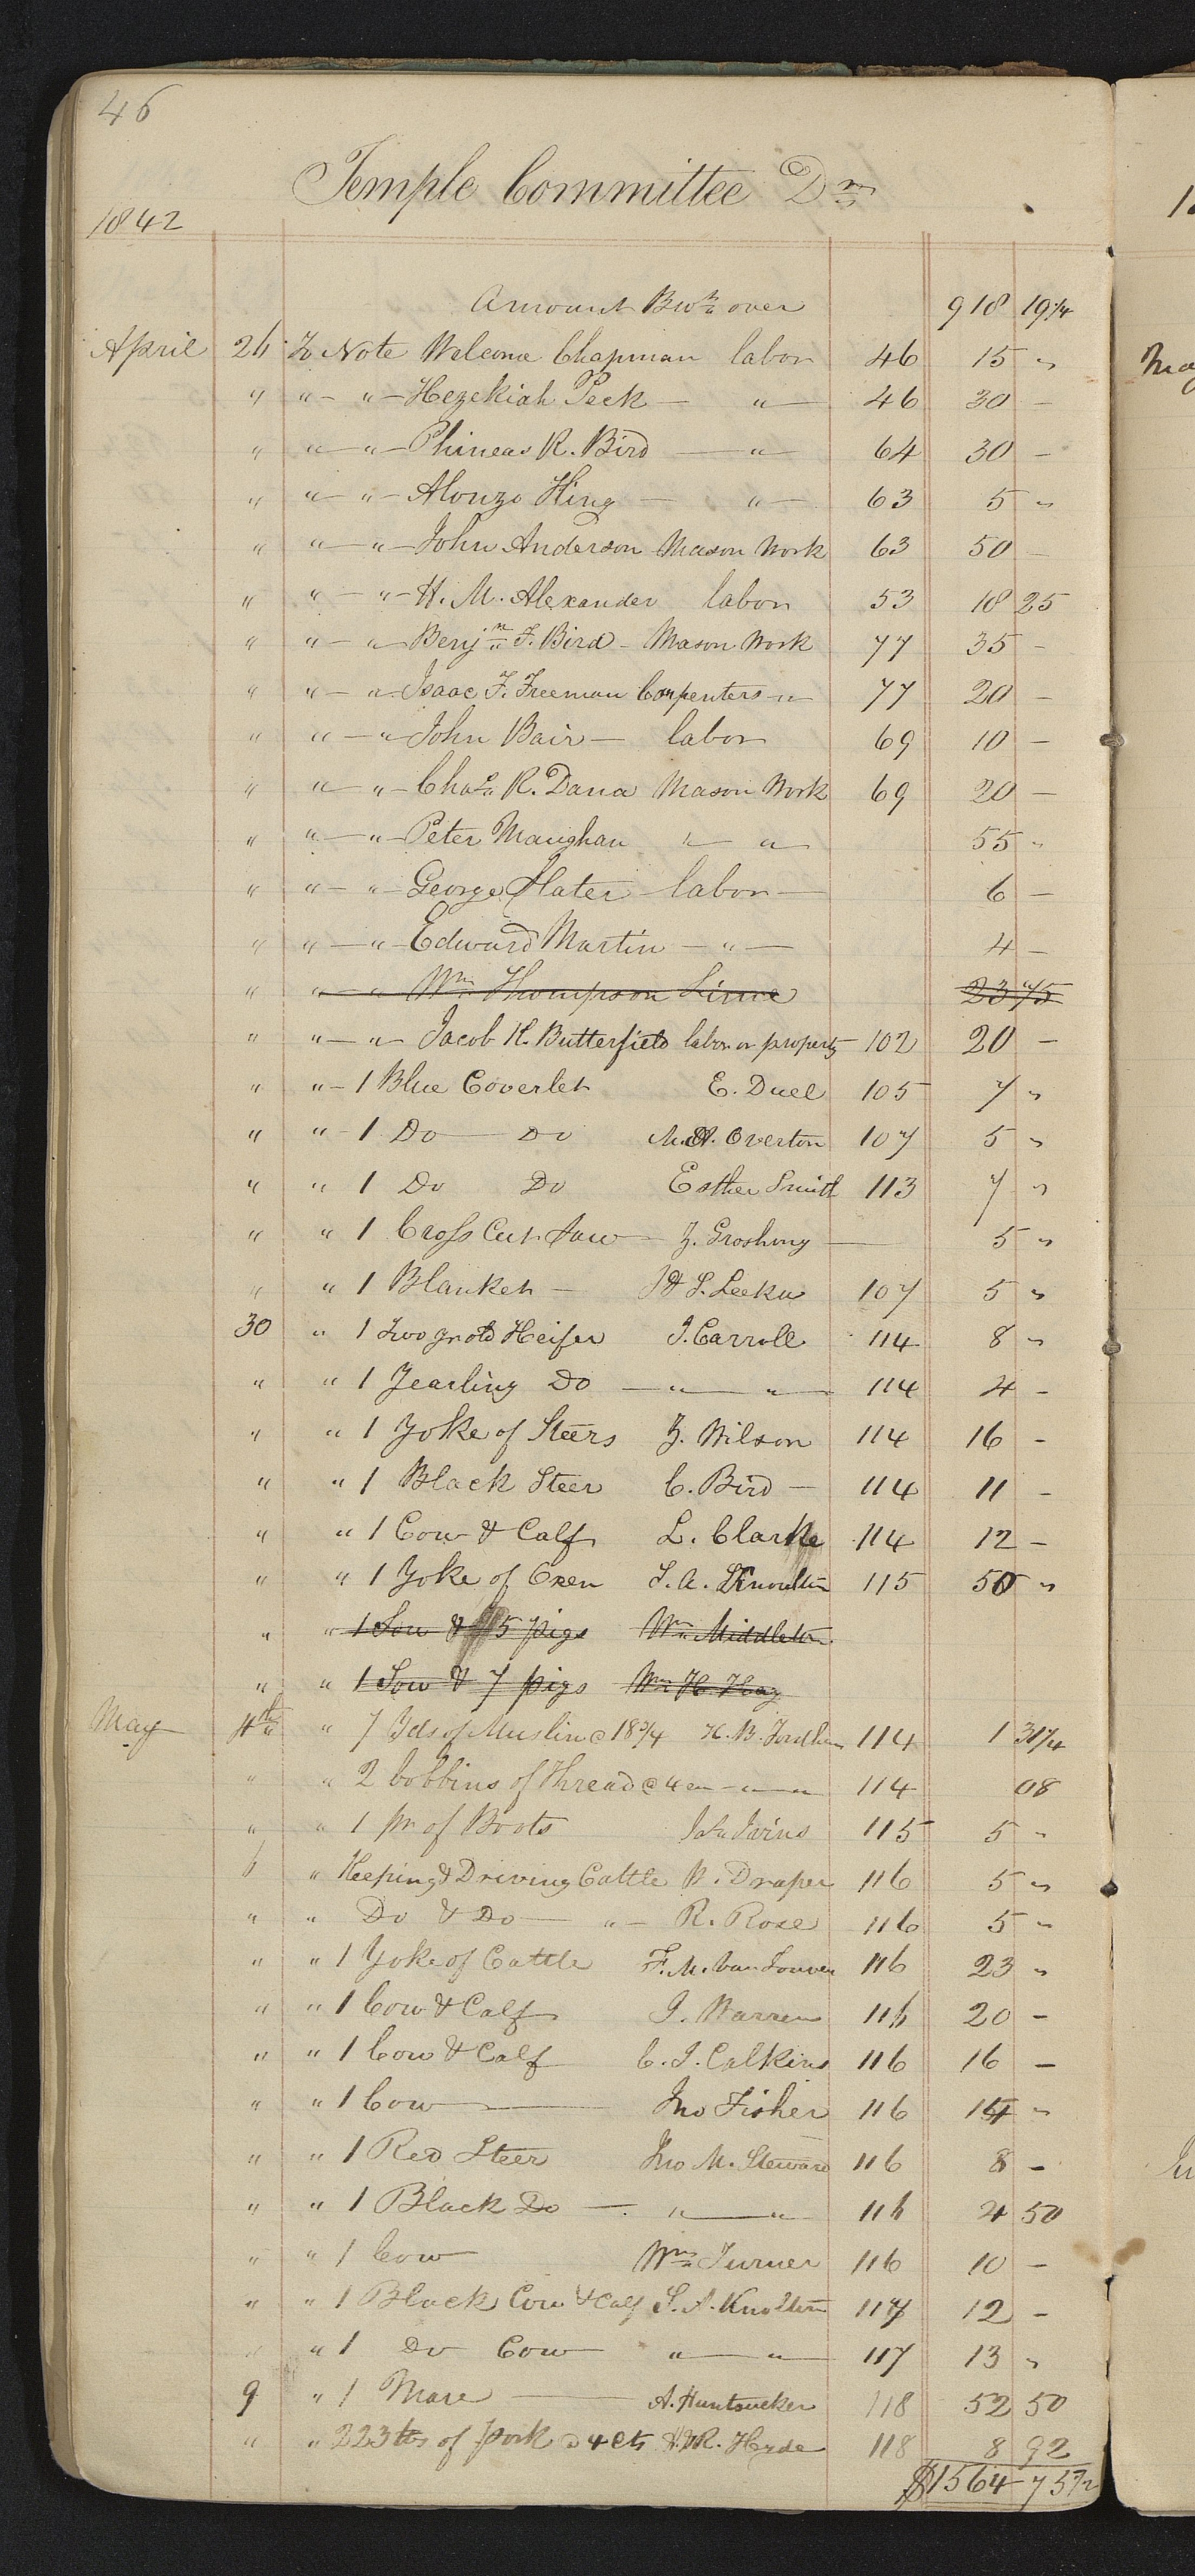 46
Temple Committee Dr
1842
Amount Brot over 918 19 1/4
April 26 To Note Welcome Chapman labor 46 15 "
" " - " - Hezekiah Peck - " - 46 30 -
" " - " - Phineas R. Bird - " - 64 30 -
" " - " - Alonzo King - " - 63 5 "
" " - " - John Anderson Mason Work 63 50 -
" " - " - H. M. Alexander labor 53 18 25
" " - " - Benjn F. Bird - Mason Work 77 35 -
" " - " - Isaac F. Freeman Carpenters " 77 20 -
" " - " - John Bair - labor 69 10 -
" " - " - Chas R. Dana Mason Work 69 20 -
" " - " - Peter Maughan " - " 55 "
" " - " - George Slater labor - 6 -
" " - " - Edward Martin - " - 4 -
" " - " Wm Thompson Lime 23 75
" " - " - Jacob K. Butterfield labor or property 102 20 -
" " - 1 Blue Coverlet E. Duel 105 7 "
" " - 1 Do - Do M. A. Overton 107 5 "
" " 1 Do Do Esther Smith 113 7 "
" " 1 Cross Cut Saw - Z. - 5 "
" " 1 Blanket - 107 5 "
30 " 1 Two yr old Heifer J. Carroll 114 8 "
" " 1 Yearling Do - " - " - 114 4 -
" " 1 Yoke of Steers Z. Wilson 114 16 -
" " 1 Black Steer C. Bird - 114 11 -
" " 1 Cow & Calf L. Clarke 114 12 -
" " 1 Yoke of Oxen S. A. Knoulton 115 50 "
" " 1 Sow & 5 pigs Wm Middleton
" " 1 Sow & 7 pigs Wm H.
May 4th " 7 Yds of Muslin @ 18 3/4 H. B. Fordham 114 1 31 1/4
" " 2 bobbins of Thread @ 4 " - " 114 08
" " 1 pr of Boots Jas Ivins 115 5 "
6 " Keeping & Driving Cattle W. Draper 116 5 "
" " Do & Do - " - R. Rose 116 5 "
" " 1 Yoke of Cattle F. M. Van 116 23 "
" " 1 Cow & Calf J. Warren 116 20 -
" " 1 Cow & Calf C. J. Calkins 116 16 -
" " 1 Cow - Jno Fisher 116 14 "
" " 1 Red Steer Jno M. Steward 116 8 -
" " 1 Black Do - " - " 116 4 50
" " 1 Cow Wm Turner 116 10 -
" " 1 Black Cow & Calf S. A. Knolton 117 12 -
" " 1 Do Cow " - " 117 13 "
9 " 1 Mare - A. Huntsucker 118 52 50
" " 223 lbs of pork @ 4 cts H. & R. Hyde 118 8 92
$1564 75 1/2